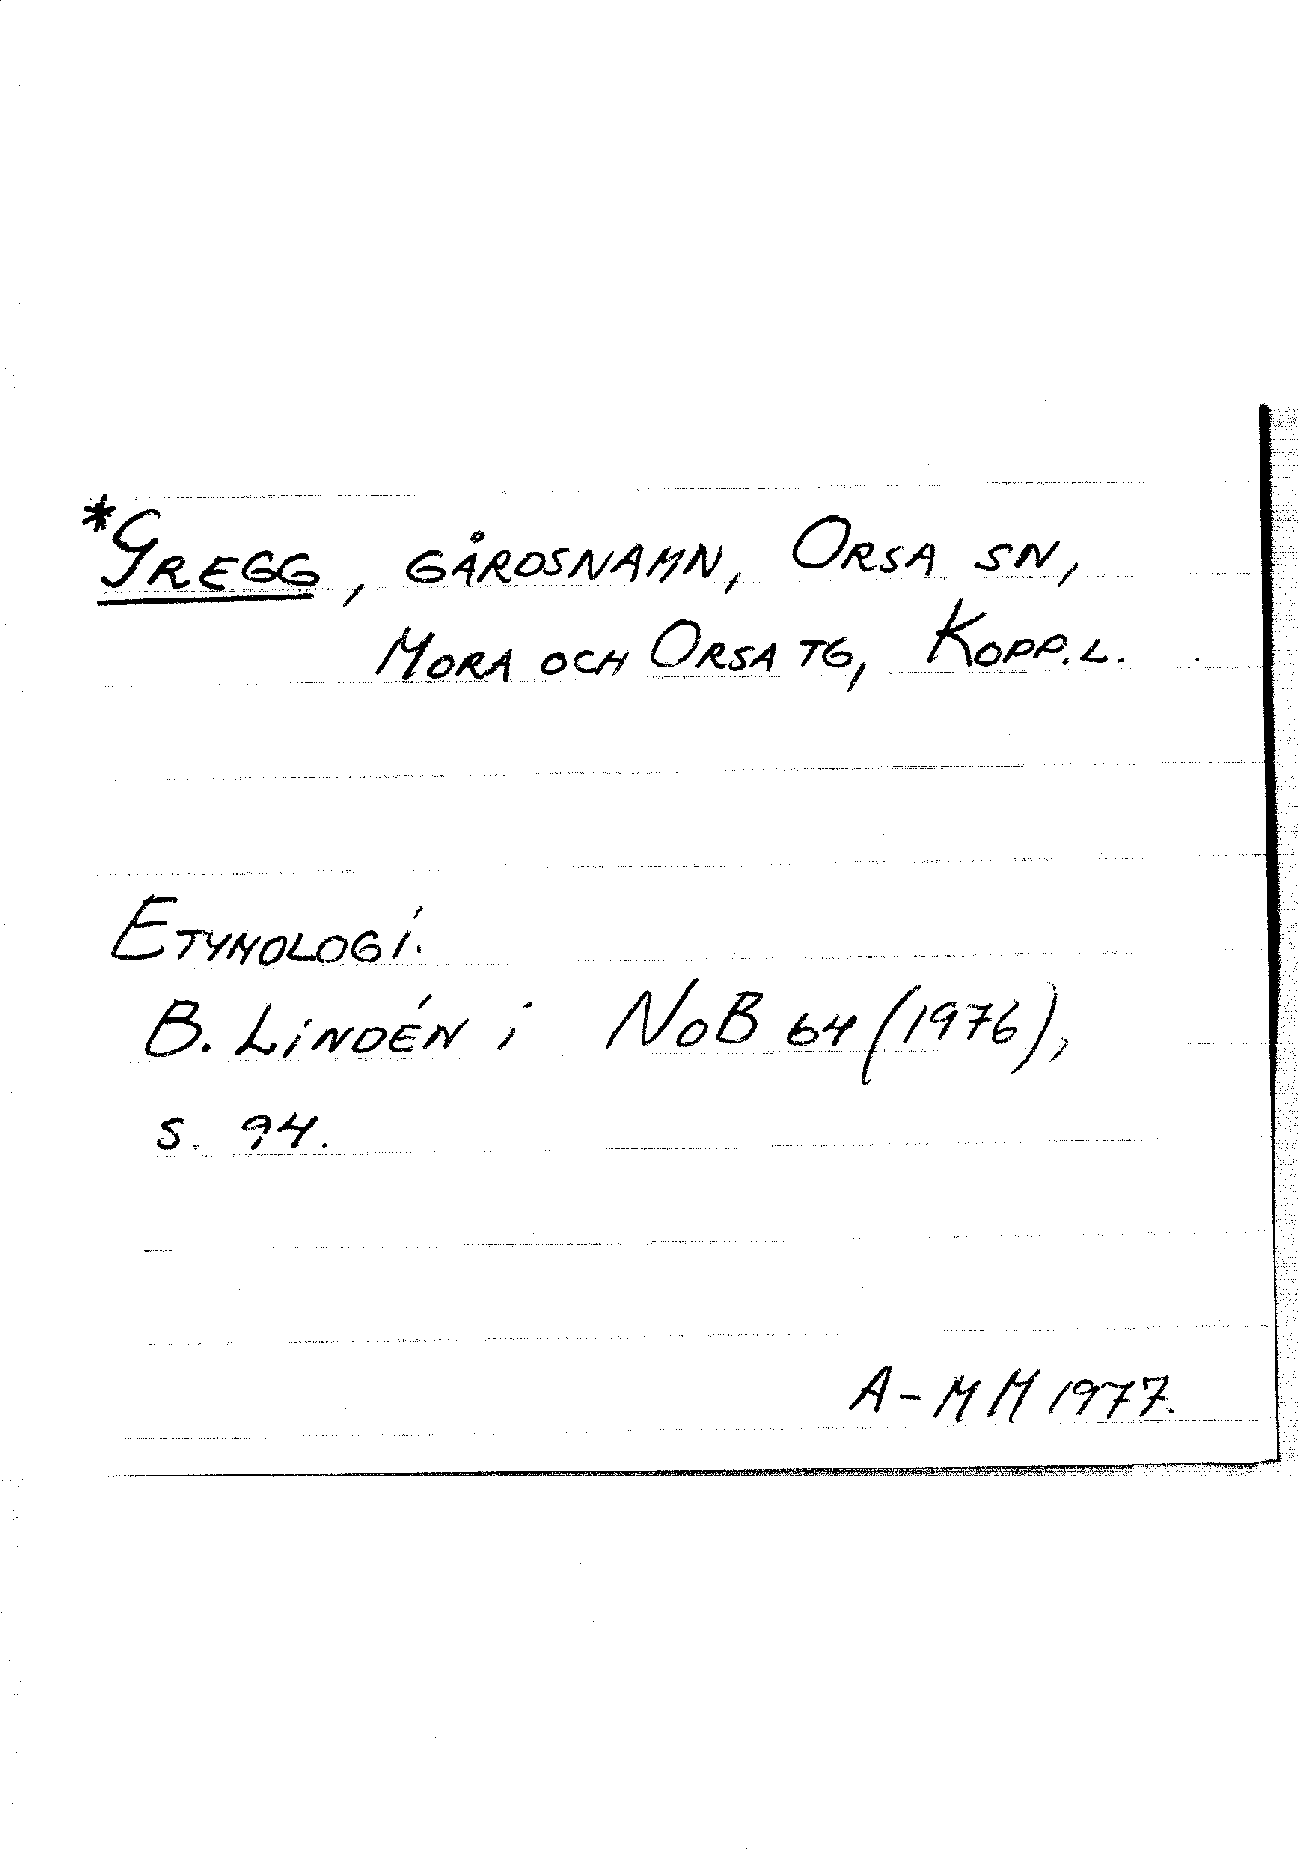 *GREGG, GÅRDSNAMN, ORSA SN,
MORA OCH ORSA TG, KOPP. L.
ETYMOLOGI.
B. LINDÉN i NoB 64 (1976),
S. 94.
A-MM 1977.